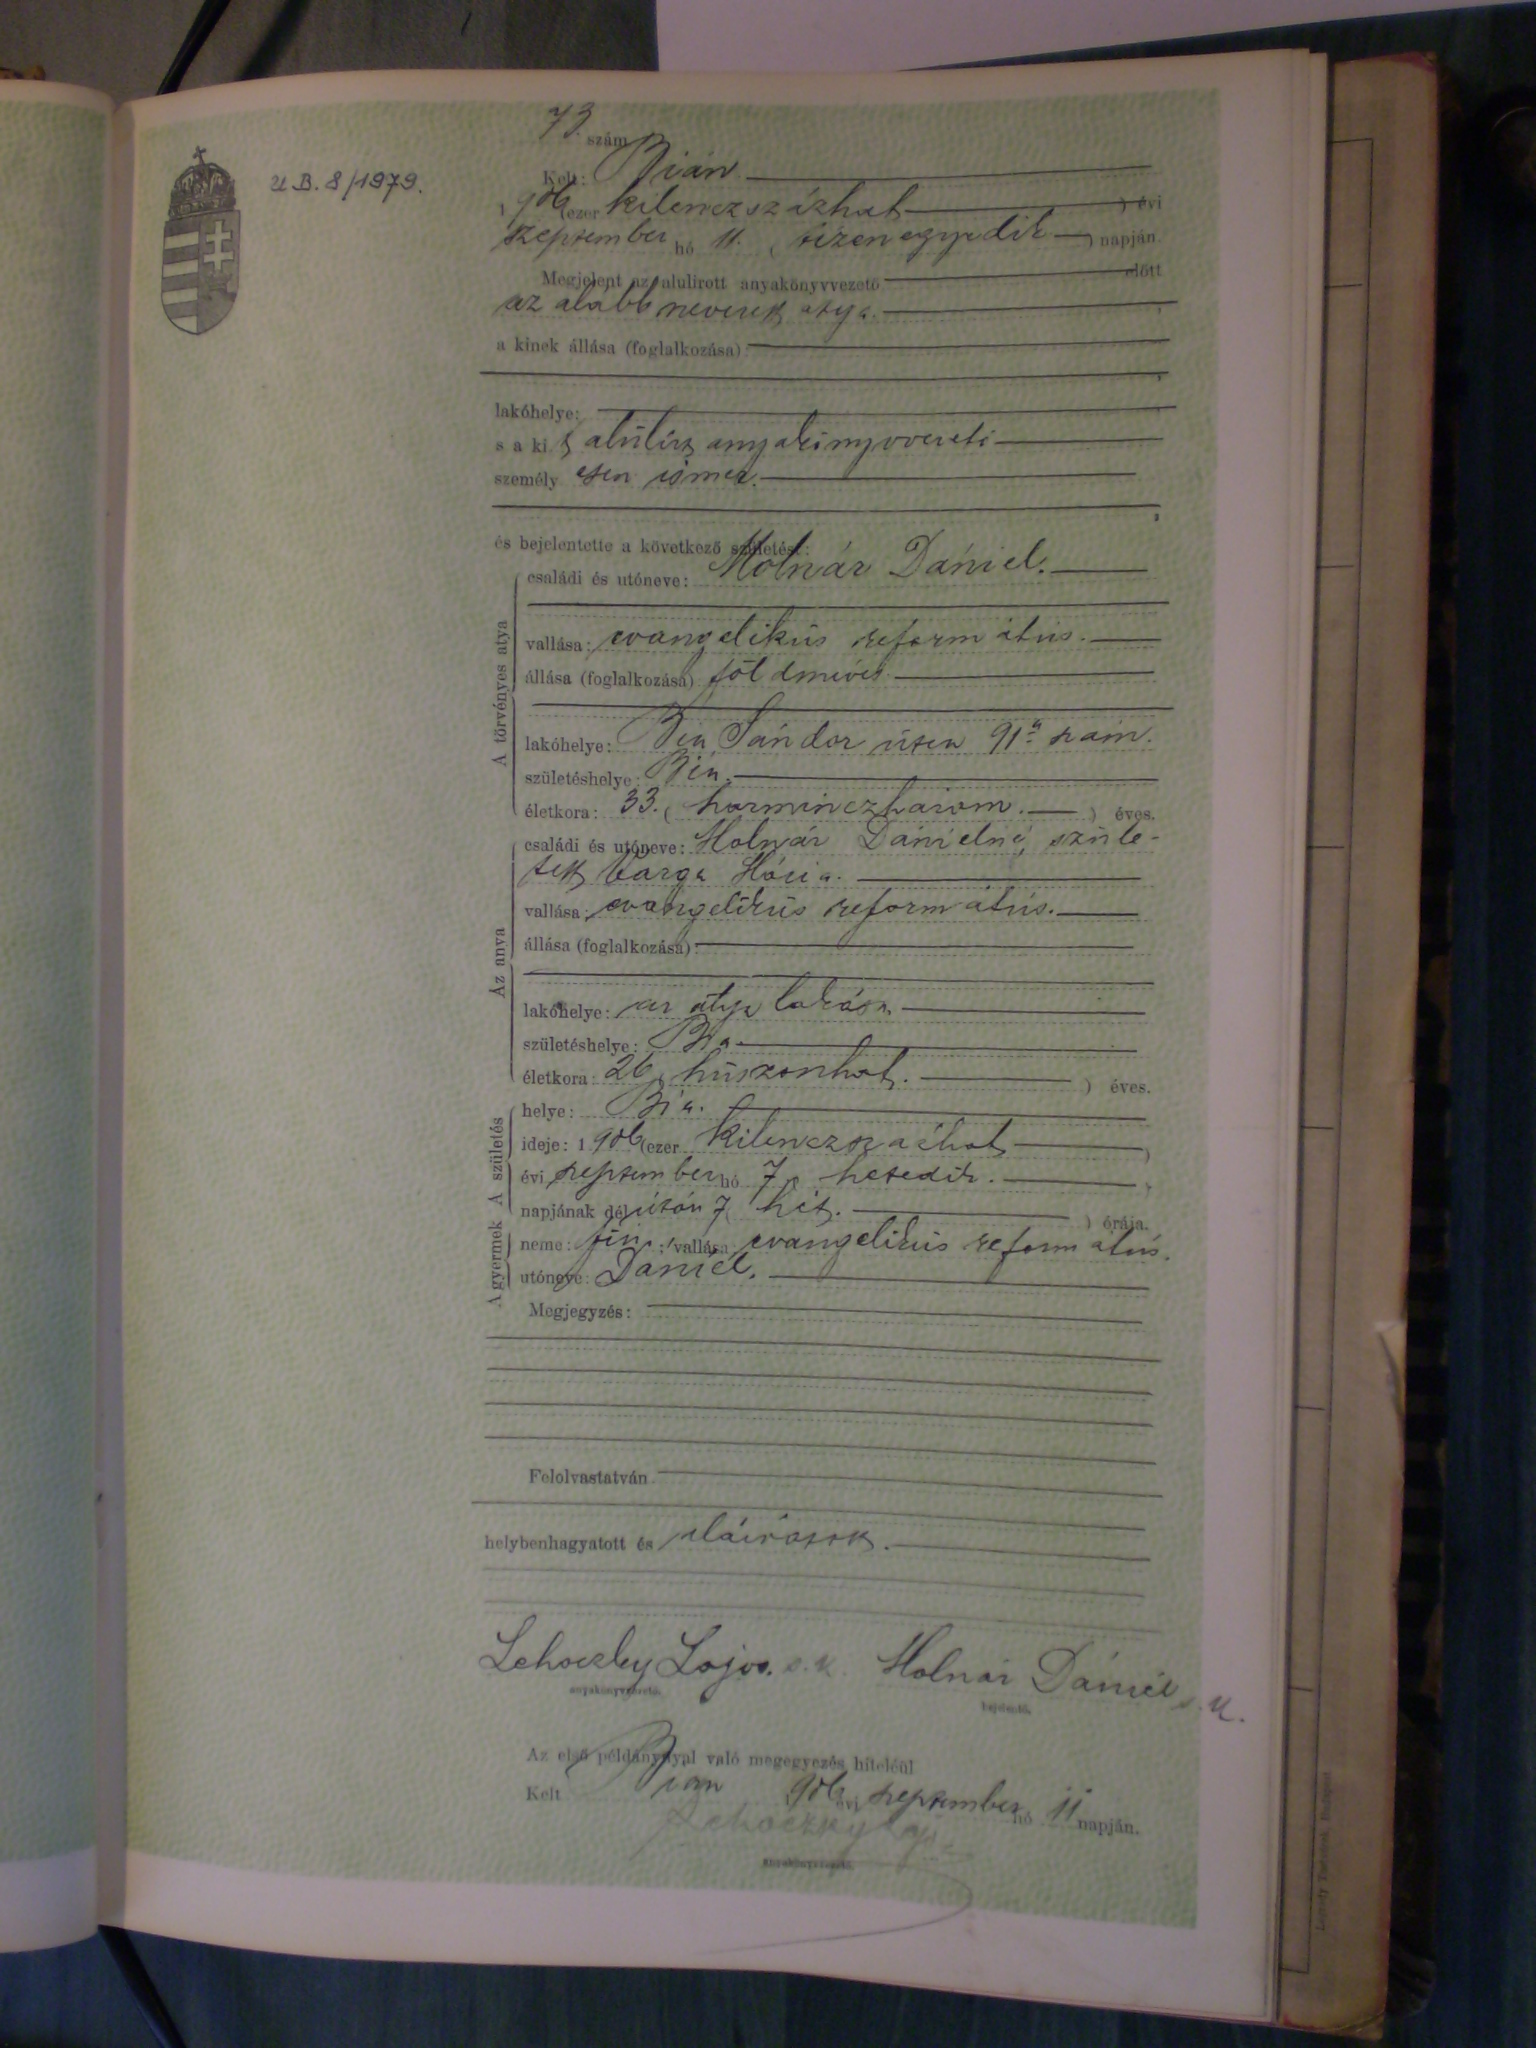 73. szám
U.B. 8/1979.
Kelt: Bián
1906 (ezer kilenczszázhat ) évi
szeptember hó 11. ( tizenegyedik ) napján.
Megjelent az alulirott anyakönyvvezető előtt
az alább nevezett atya.
a kinek állása (foglalkozása):
lakóhelye:
s a ki t alulírt anyakönyvvezető
személy esen ismer.
és bejelentette a következő születést:
A törvényes atya
családi és utóneve: Molnár Dániel.
vallása: evangelikus református.
állása (foglalkozása) földmíves
lakóhelye: Bia Sándor utca 91 szám.
születéshelye: Bia.
életkora: 33. ( harminczhárom. ) éves.
Az anya
családi és utóneve: Molnár Dánielné, szüle-
tett Varga Mária.
vallása: evangelikus református.
állása (foglalkozása):
lakóhelye: az atya lakása
születéshelye: Bia
életkora: 26 ( huszonhat. ) éves.
A születés
helye: Bia.
ideje: 1906 (ezer kilenczszázhat )
évi szeptember hó 7 ( hetedik. )
napjának délután 7 ( hét. ) órája.
A gyermek
neme: fiú ; vallása evangelikus református.
utóneve: Dániel.
Megjegyzés:
Felolvastatván
helybenhagyatott és aláíratott.
Lehoczky Lajos. s. k. Molnár Dániel s. k.
anyakönyvvezető. bejelentő.
Az első példánynyal való megegyezés hiteléül
Kelt Bián 1906 évi szeptember hó 11 napján.
Lehoczky Lajos
anyakönyvvezető.